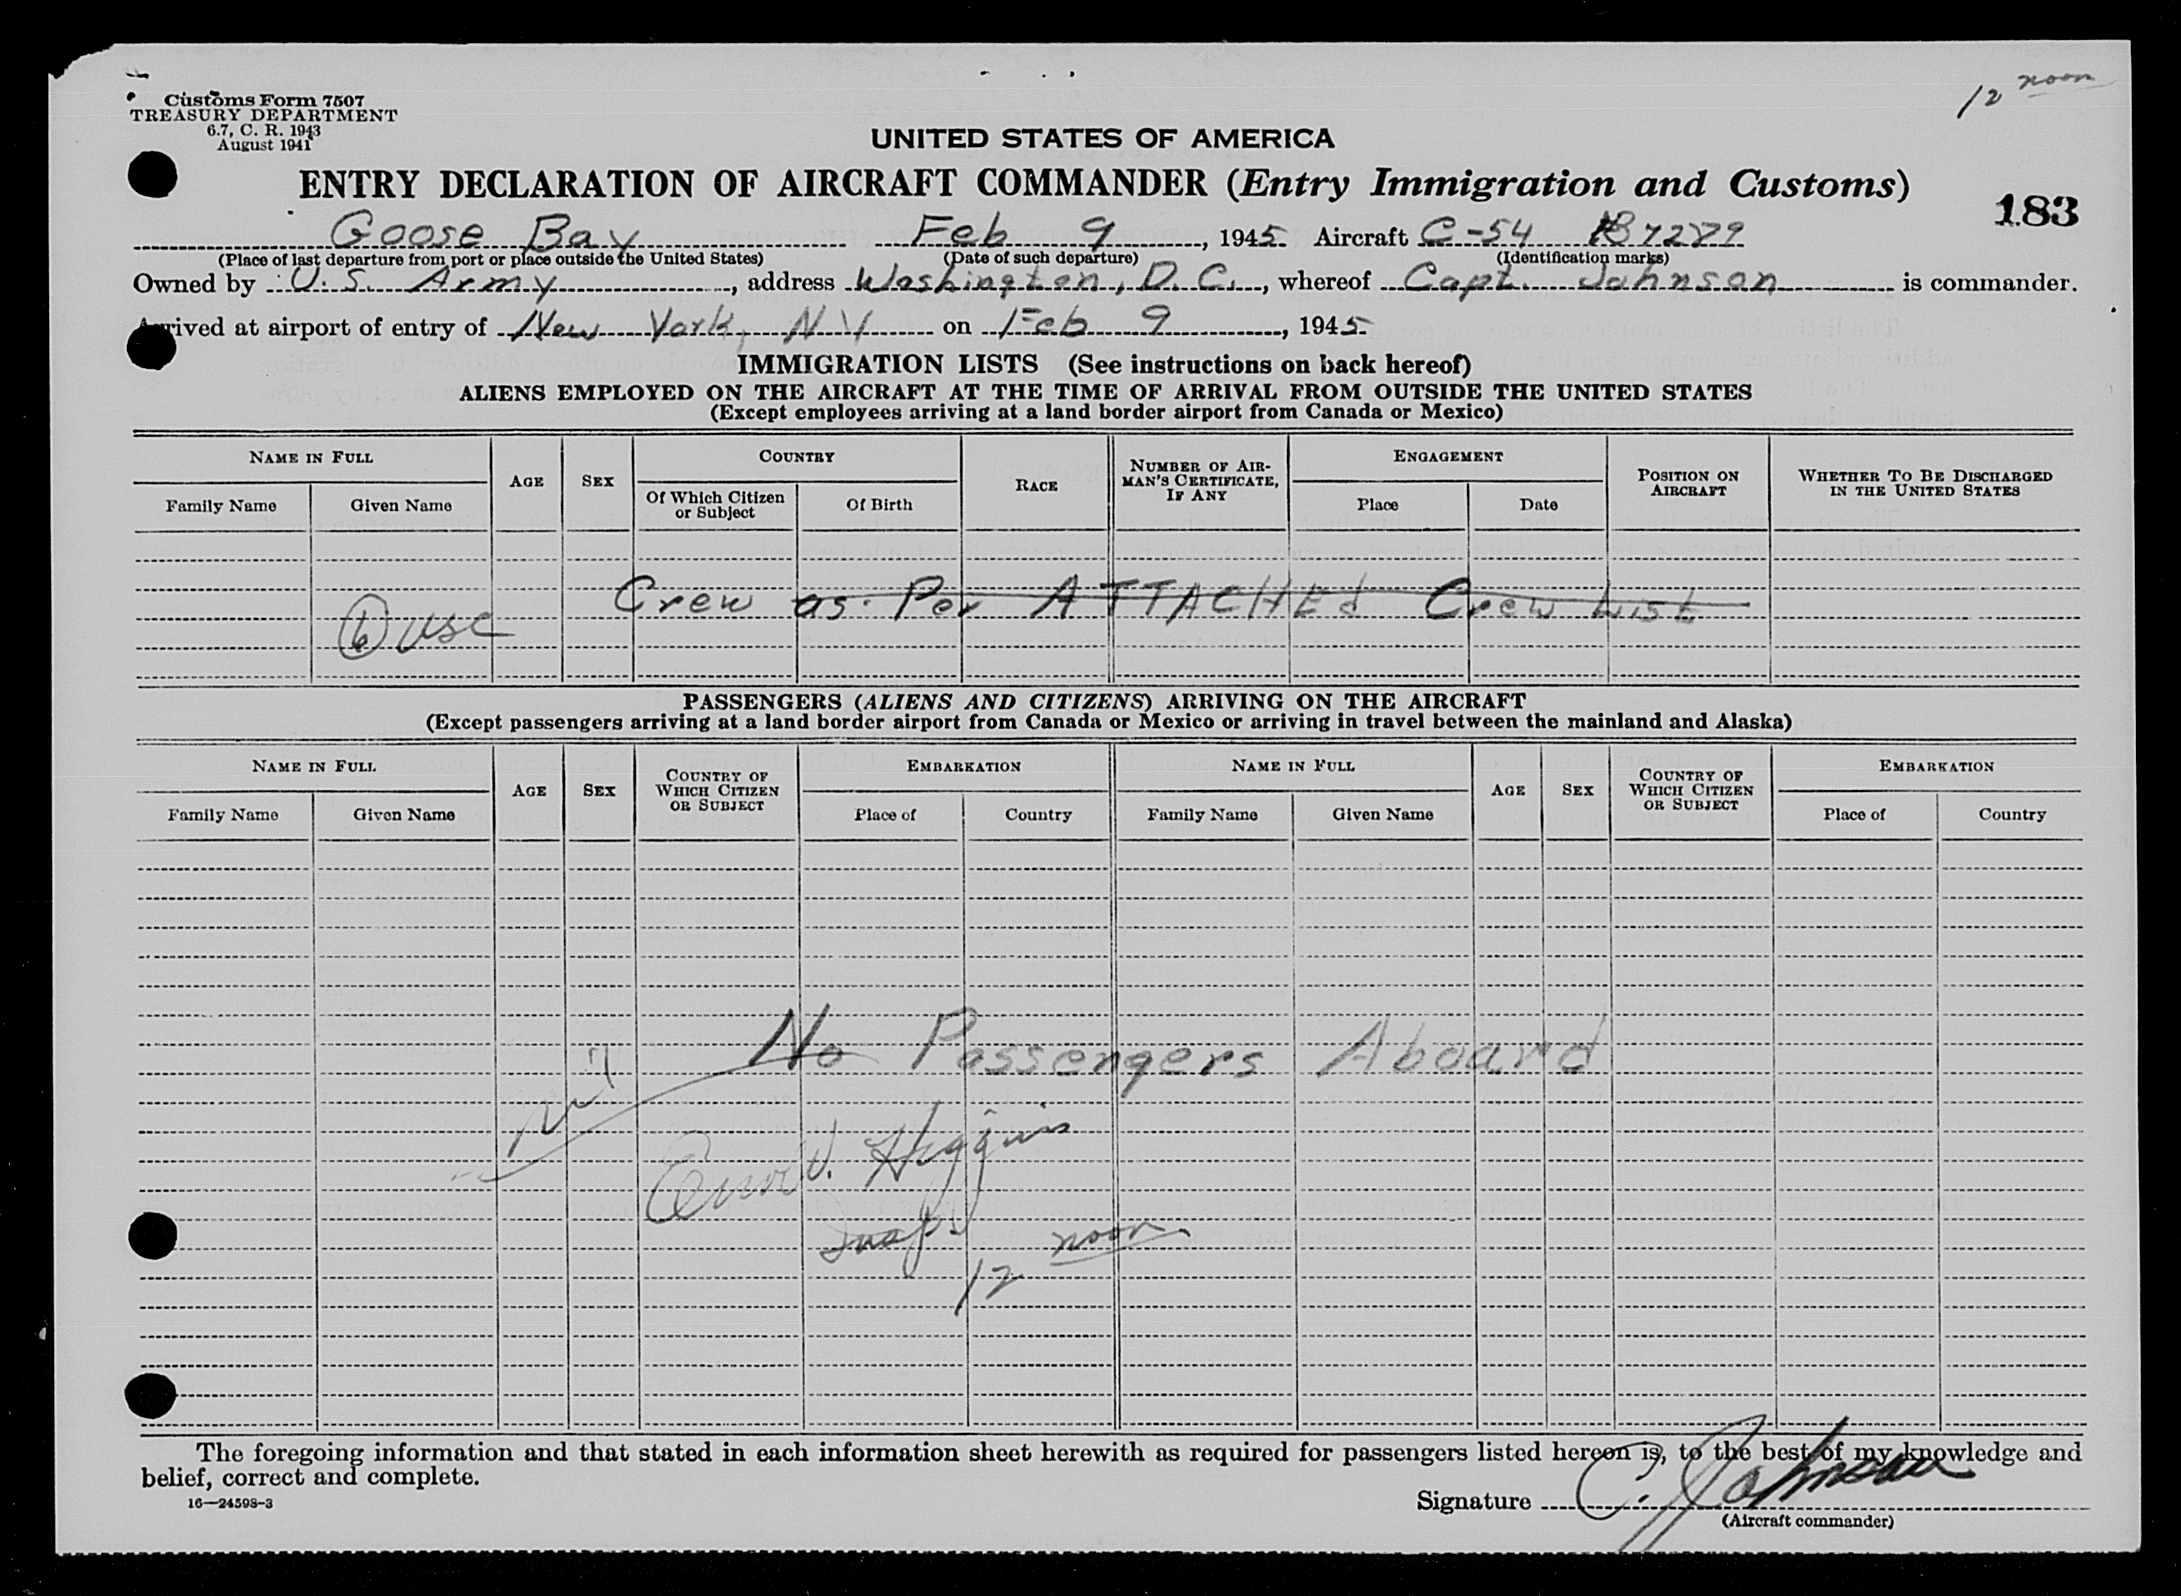 12 noon
Customs Form 7507
TREASURY DEPARTMENT
6.7, C. R. 1943
August 1941
UNITED STATES OF AMERICA
ENTRY DECLARATION OF AIRCRAFT COMMANDER (Entry Immigration and Customs)
183
Goose Bay Feb 9, 1945 Aircraft C-54
(Place of last departure from port or place outside the United States) (Date of such departure) (Identification marks)
Owned by U. S. Army, address Washington, D. C., whereof Capt. Johnson is commander.
Arrived at airport of entry of New York, N Y on Feb 9, 1945
IMMIGRATION LISTS (See instructions on back hereof)
ALIENS EMPLOYED ON THE AIRCRAFT AT THE TIME OF ARRIVAL FROM OUTSIDE THE UNITED STATES
(Except employees arriving at a land border airport from Canada or Mexico)
NAME IN FULL AGE SEX COUNTRY RACE NUMBER OF AIRMAN'S CERTIFICATE, IF ANY ENGAGEMENT POSITION ON AIRCRAFT WHETHER TO BE DISCHARGED IN THE UNITED STATES
Family Name Given Name Of Which Citizen or Subject Of Birth Place Date
Crew as Per ATTACHEd Crew List
6 USC
PASSENGERS (ALIENS AND CITIZENS) ARRIVING ON THE AIRCRAFT
(Except passengers arriving at a land border airport from Canada or Mexico or arriving in travel between the mainland and Alaska)
NAME IN FULL AGE SEX COUNTRY OF WHICH CITIZEN OR SUBJECT EMBARKATION NAME IN FULL AGE SEX COUNTRY OF WHICH CITIZEN OR SUBJECT EMBARKATION
Family Name Given Name Place of Country Family Name Given Name Place of Country
No Passengers Aboard
Nil
Higgins
Insp.
12 noon
The foregoing information and that stated in each information sheet herewith as required for passengers listed hereon is, to the best of my knowledge and
belief, correct and complete.
16—24598-3
Signature C. Johnson
(Aircraft commander)